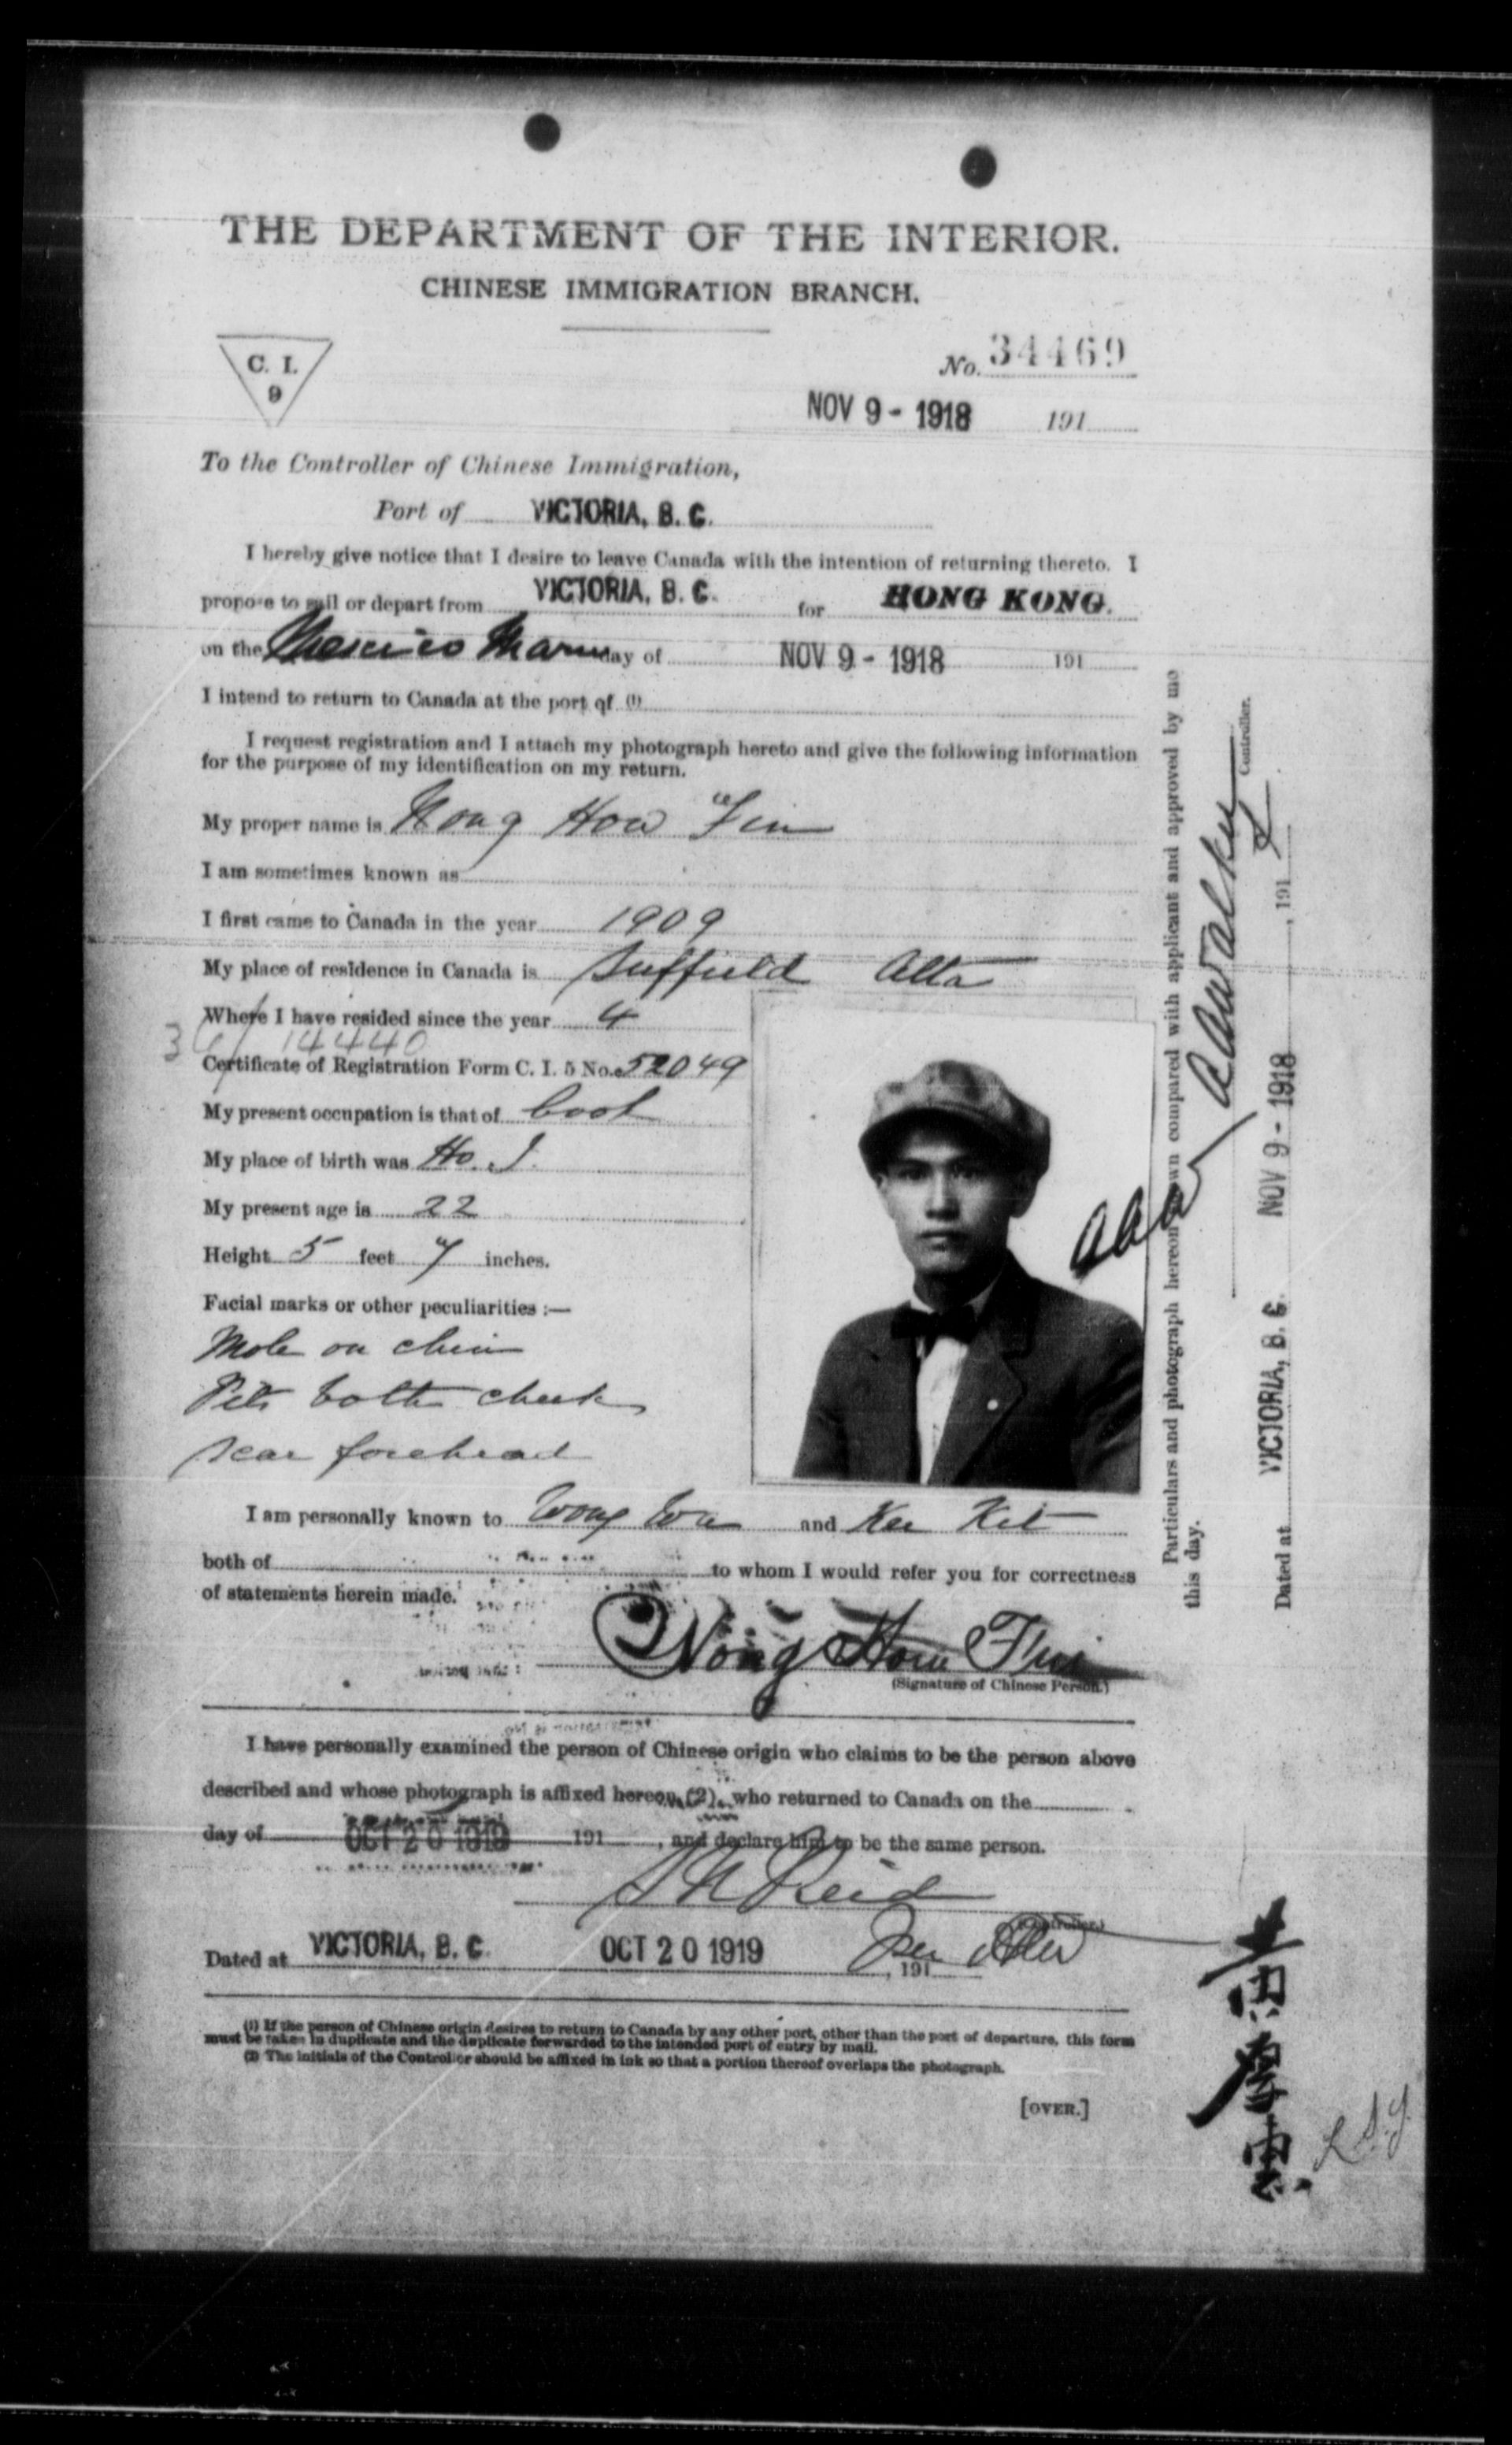 THE DEPARTMENT OF THE INTERIOR.
CHINESE IMMIGRATION BRANCH.
C. I.
9
No. 34469
NOV 9 - 1918 191
To the Controller of Chinese Immigration,
Port of VICTORIA, B. C.
I hereby give notice that I desire to leave Canada with the intention of returning thereto. I
propose to sail or depart from VICTORIA, B. C. for HONG KONG.
on the Mexico Maru day of NOV 9 - 1918 191
I intend to return to Canada at the port of (1)
I request registration and I attach my photograph hereto and give the following information
for the purpose of my identification on my return.
My proper name is Wong How Fin
I am sometimes known as
I first came to Canada in the year 1909
My place of residence in Canada is Suffield Alta
Where I have resided since the year 4
14440
Certificate of Registration Form C. I. 5 No. 52049
My present occupation is that of Cook
My place of birth was Ho.
My present age is 22
Height 5 feet 7 inches.
Facial marks or other peculiarities :—
Mole on chin
Pits both cheek
Scar forehead
I am personally known to Wong Wa and Kee Kit
both of to whom I would refer you for correctness
of statements herein made.
Wong How Fin
(Signature of Chinese Person.)
I have personally examined the person of Chinese origin who claims to be the person above
described and whose photograph is affixed hereon (2), who returned to Canada on the
day of OCT 20 1919 191 , and declare him to be the same person.
Reid
(Controller.)
Dated at VICTORIA, B. C. OCT 20 1919 , 191
(1) If the person of Chinese origin desires to return to Canada by any other port, other than the port of departure, this form
must be taken in duplicate and the duplicate forwarded to the intended port of entry by mail.
(2) The initials of the Controller should be affixed in ink so that a portion thereof overlaps the photograph.
[OVER.]
Particulars and photograph hereon shown compared with applicant and approved by me
this day.
Controller.
Dated at VICTORIA, B. C. NOV 9 - 1918 , 191
黄厚寬